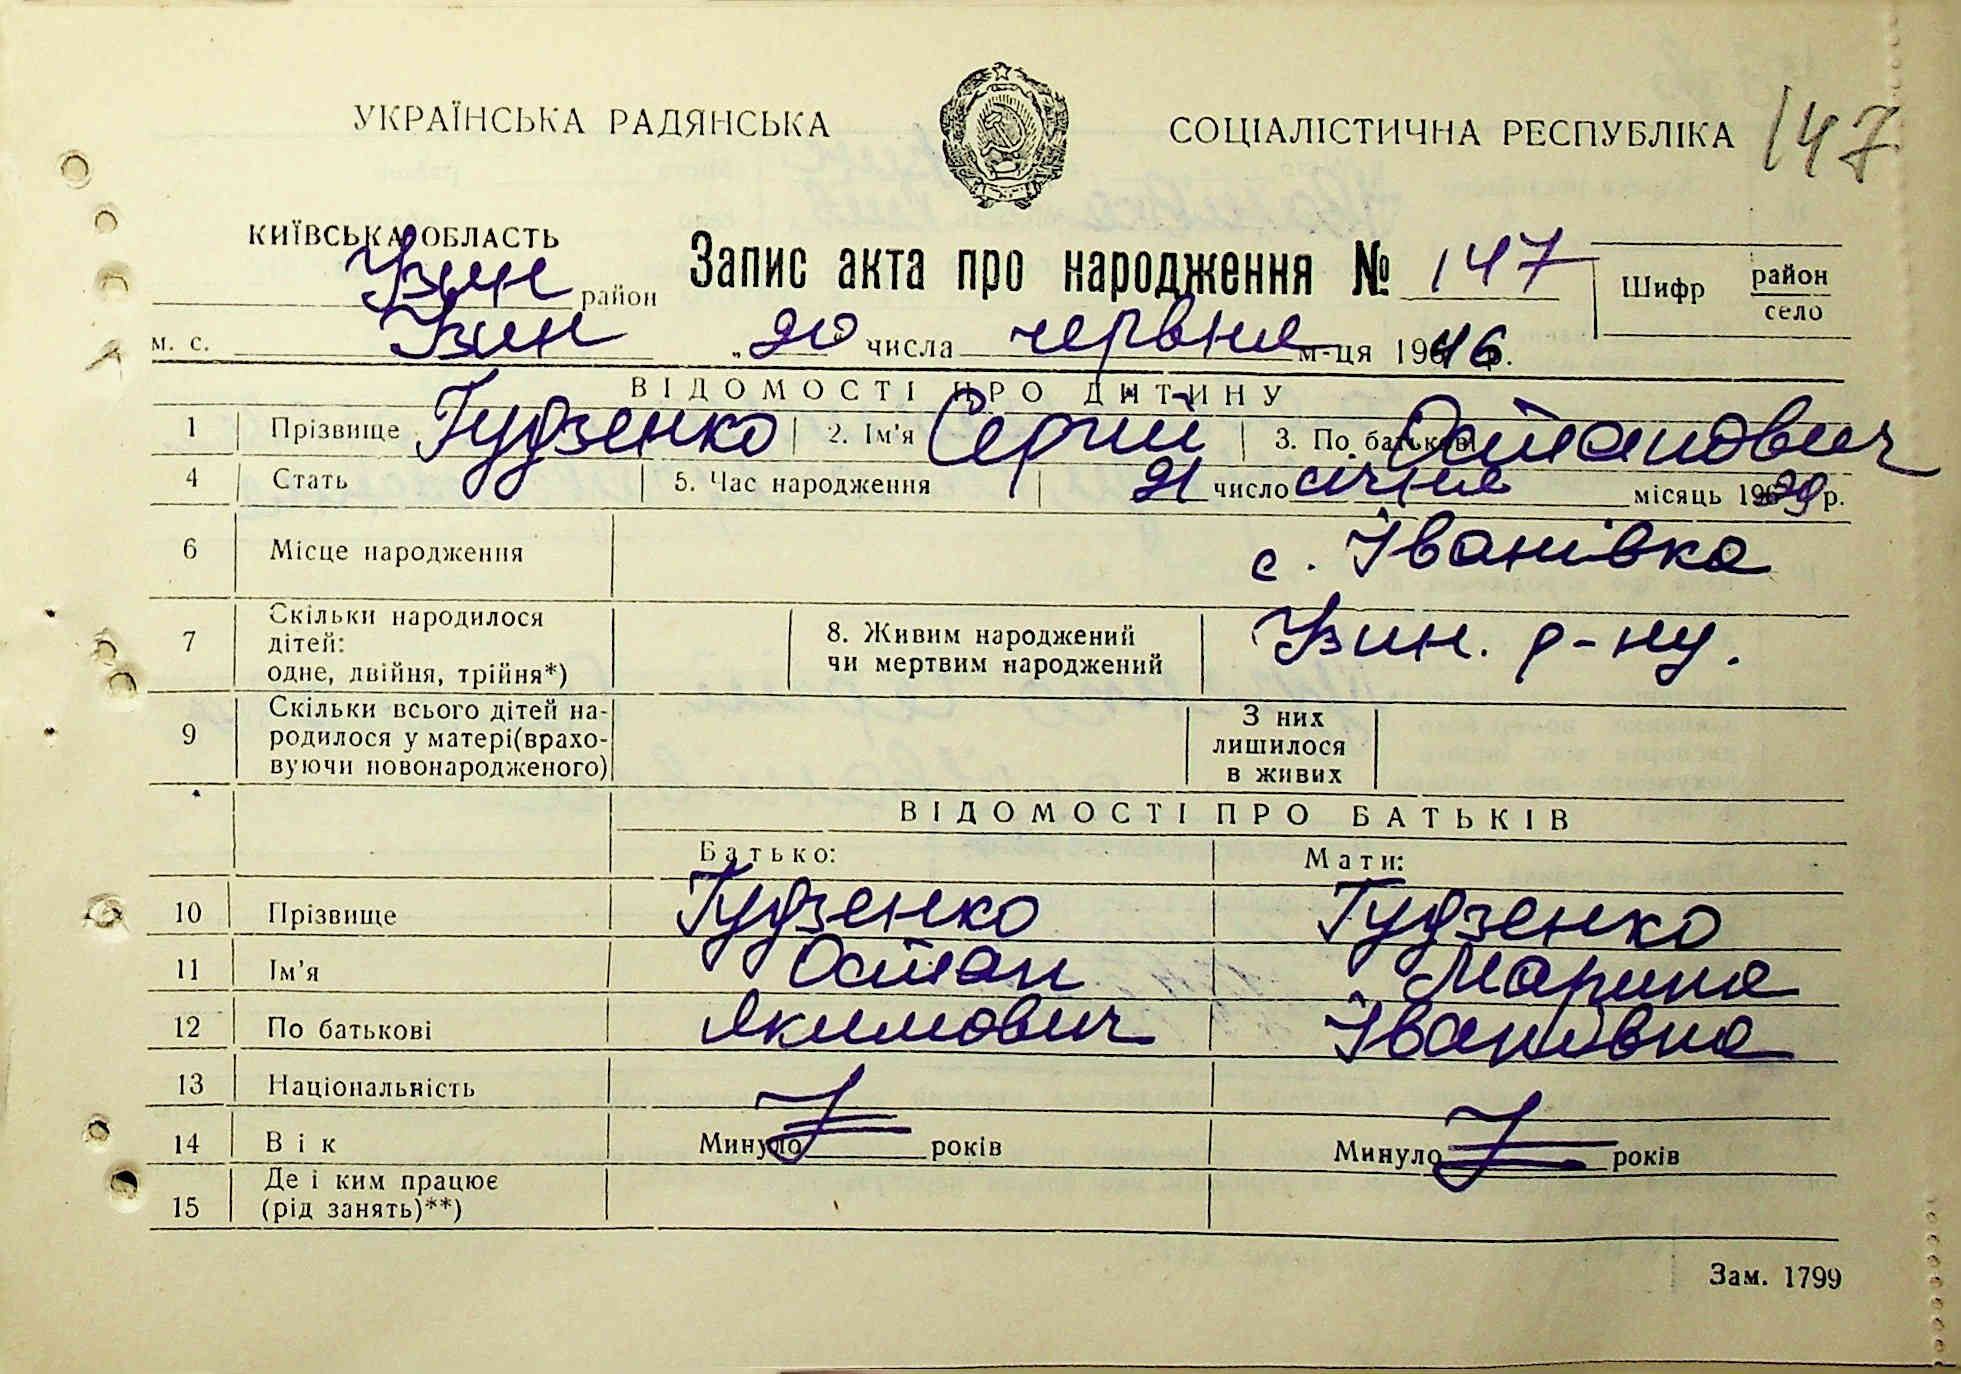 УКРАЇНСЬКА РАДЯНСЬКА СОЦІАЛІСТИЧНА РЕСПУБЛІКА 147
КИЇВСЬКА ОБЛАСТЬ
Узин район Запис акта про народження № 147 Шифр район село
м. с. Узин „20 числа червня м-ця 1946 р.
ВІДОМОСТІ ПРО ДИТИНУ
1 Прізвище Гудзенко 2. Ім'я Сергій 3. По батькові Остапович
4 Стать 5. Час народження 21 число січня місяць 1929 р.
6 Місце народження с. Іванівка
7 Скільки народилося дітей: одне, двійня, трійня*) 8. Живим народжений чи мертвим народжений Узин. р-ну.
9 Скільки всього дітей на-
родилося у матері(врахо-
вуючи новонародженого) З них лишилося в живих
ВІДОМОСТІ ПРО БАТЬКІВ
Батько: Мати:
10 Прізвище Гудзенко Гудзенко
11 Ім'я Остап Марина
12 По батькові Якимович Іванівна
13 Національність
14 Вік Минуло років Минуло років
15 Де і ким працює
(рід занять)**)
Зам. 1799